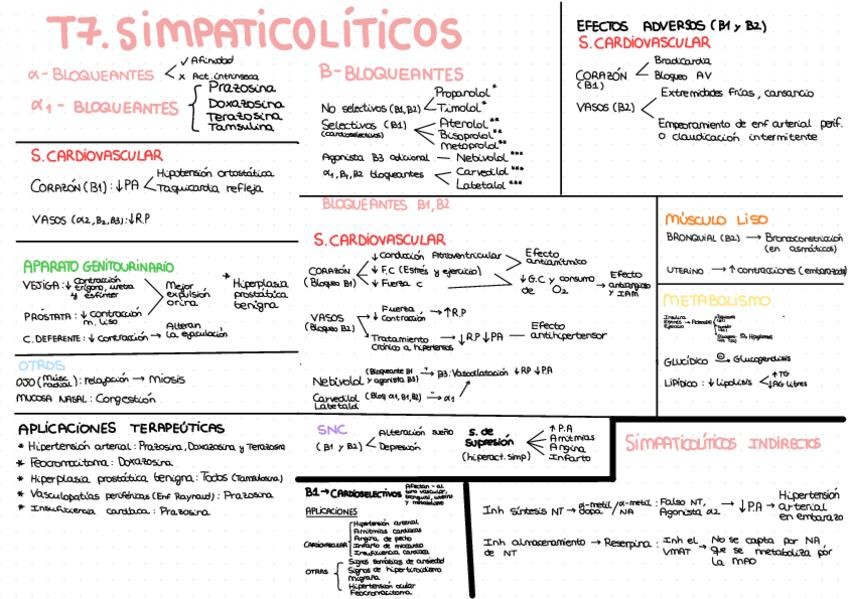 T7. SIMPATICOLÍTICOS
α-BLOQUEANTES
✓ Afinidad
x Act. intrínseca
α1-BLOQUEANTES
Prazosina
Doxazosina
Terazosina
Tamsulina
B-BLOQUEANTES
No selectivos (B1,B2)
Propanolol *
Timolol *
Selectivos (B1)
(cardioselectivos)
Atenolol **
Bisoprolol **
Metoprolol **
Agonista B3 adicional — Nebivolol ***
α1, B1, B2 bloqueantes
Carvedilol ***
Labetalol ***
EFECTOS ADVERSOS (B1 y B2)
S. CARDIOVASCULAR
CORAZÓN
(B1)
Bradicardia
Bloqueo AV
VASOS (B2)
Extremidades frías, cansancio
Empeoramiento de enf arterial perif.
o claudicación intermitente
S. CARDIOVASCULAR
CORAZÓN (B1): ↓PA
Hipotensión ortostática
Taquicardia refleja
VASOS (α2, B2, B3): ↓R.P
APARATO GENITOURINARIO
VEJIGA: ↓ Contracción
trígono, uretra
y esfínter
PRÓSTATA: ↓ contracción
m. liso
Mejor
expulsión
orina
* Hiperplasia
prostática
benigna
C. DEFERENTE: ↓ contracción → Alteran
la eyaculación
OTROS
OJO (músc. radial): relajación → miosis
MUCOSA NASAL: Congestión
BLOQUEANTES B1, B2
S. CARDIOVASCULAR
CORAZÓN
(Bloqueo B1)
↓ Conducción Atrioventricular
↓ F.C (Estrés y ejercicio)
↓ Fuerza c
Efecto
antiarrítmico
↓ G.C y consumo
de O2
→ Efecto
antianginoso
y IAM
VASOS
(Bloqueo B2)
↓ Fuerza
↓ Contracción → ↑R.P
Tratamiento
Crónico a hipertensos
→ ↓RP ↓PA — Efecto
antihipertensor
Nebivolol (Bloqueante B1
y agonista B3) → B3: Vasodilatación ↓RP ↓PA
Carvedilol
Labetalol
(Bloq α1, B1, B2) → α1
MÚSCULO LISO
BRONQUIAL (B2) → Broncoconstricción
(en asmáticos)
UTERINO → ↑ contracciones (embarazadas)
METABOLISMO
Insulina
Estrés
Ejercicio
GLUCÍDICO → Glucogenolisis
LIPÍDICO: ↓ Lipolisis
↑TG
↓AG libres
APLICACIONES TERAPEÚTICAS
* Hipertensión arterial: Prazosina, Doxazosina y Terazosina
* Feocromocitoma: Doxazosina
* Hiperplasia prostática benigna: Todos (Tamsulosina)
* Vasculopatías periféricas (Enf Raynaud): Prazosina
* Insuficiencia cardíaca: Prazosina
SNC
(B1 y B2)
Alteración sueño
Depresión
S. de
supresión
(hiperact. simp)
↑ P.A
Arritmias
Angina
Infarto
B1 → CARDIOSELECTIVOS
APLICACIONES
CARDIOVASCULAR
Hipertensión arterial
Arritmias cardíacas
Angina de pecho
Infarto de miocardio
Insuficiencia cardíaca
OTRAS
Signos somáticos de ansiedad
Signos de hipertiroidismo
Migraña
Hipertensión ocular
Feocromocitoma
SIMPATICOLÍTICOS INDIRECTOS
Inh síntesis NT → α-metil dopa / α-metil NA : Falso NT, Agonista α2 → ↓P.A → Hipertensión
arterial
en embarazo
Inh almacenamiento
de NT → Reserpina: Inh el
VMAT → No se capta por NA,
que se metaboliza por
la MAO